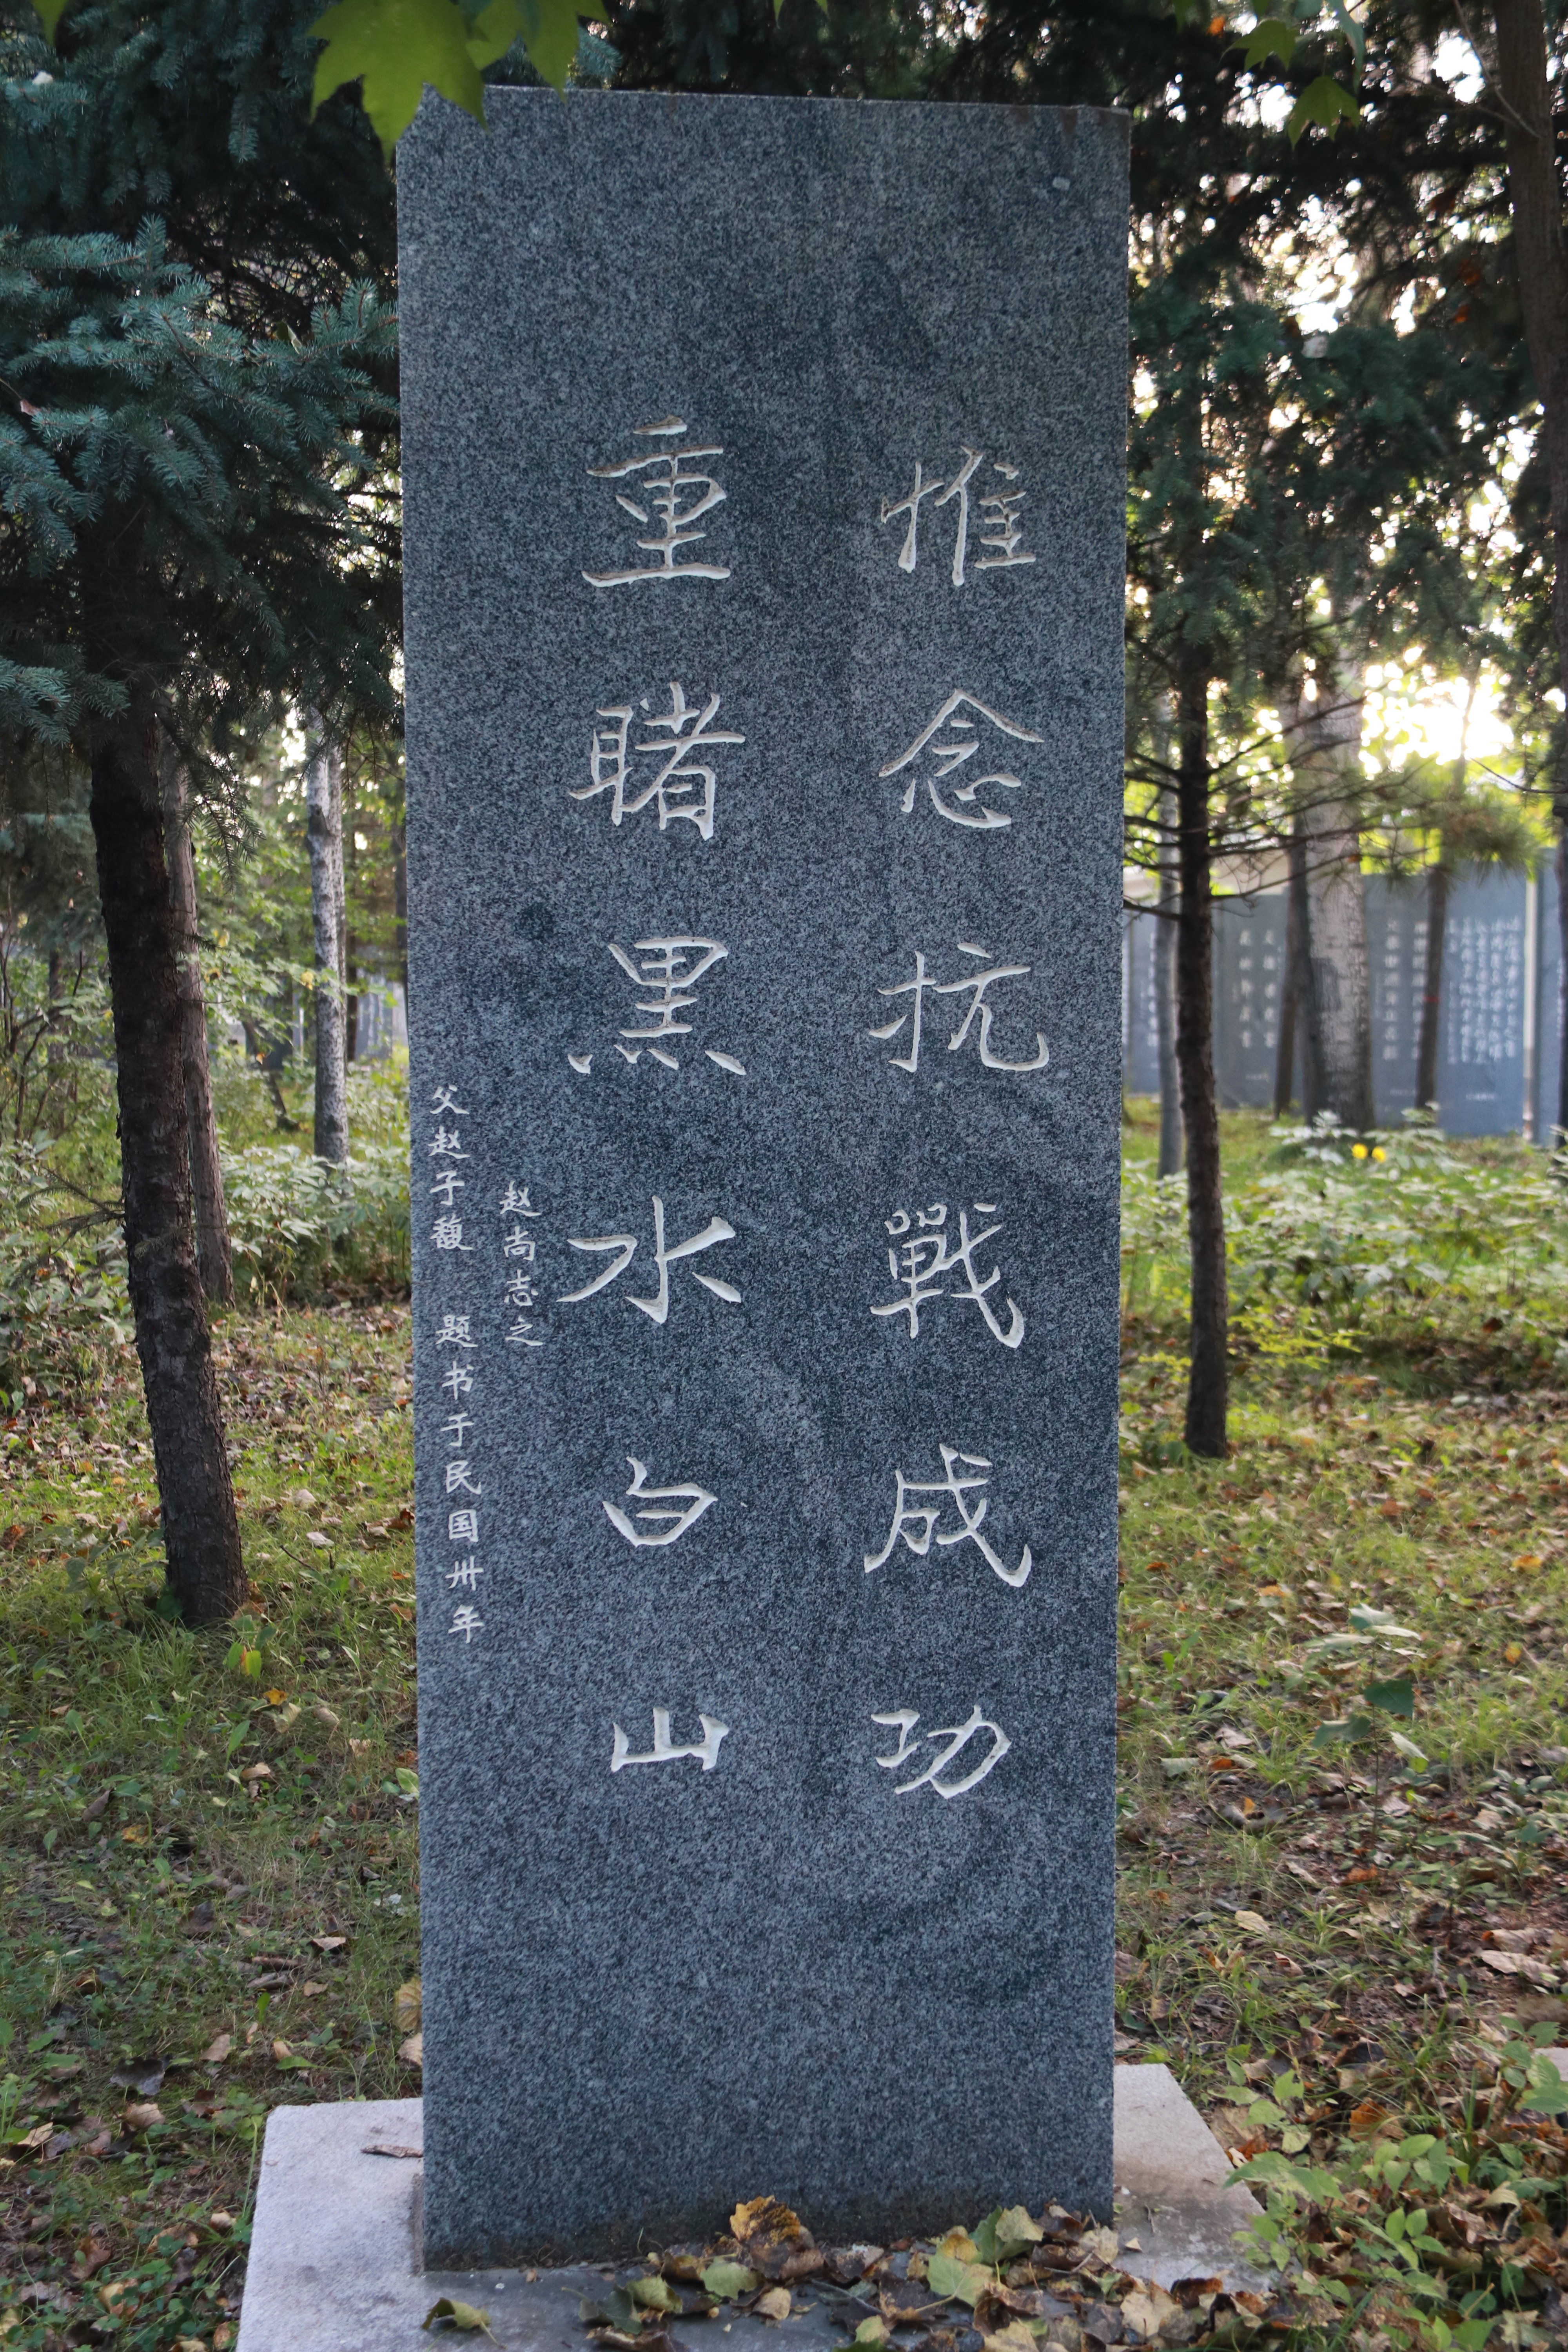 惟念抗戰成功
重睹黑水白山
赵尚志之
父赵子馥 题书于民国卅年